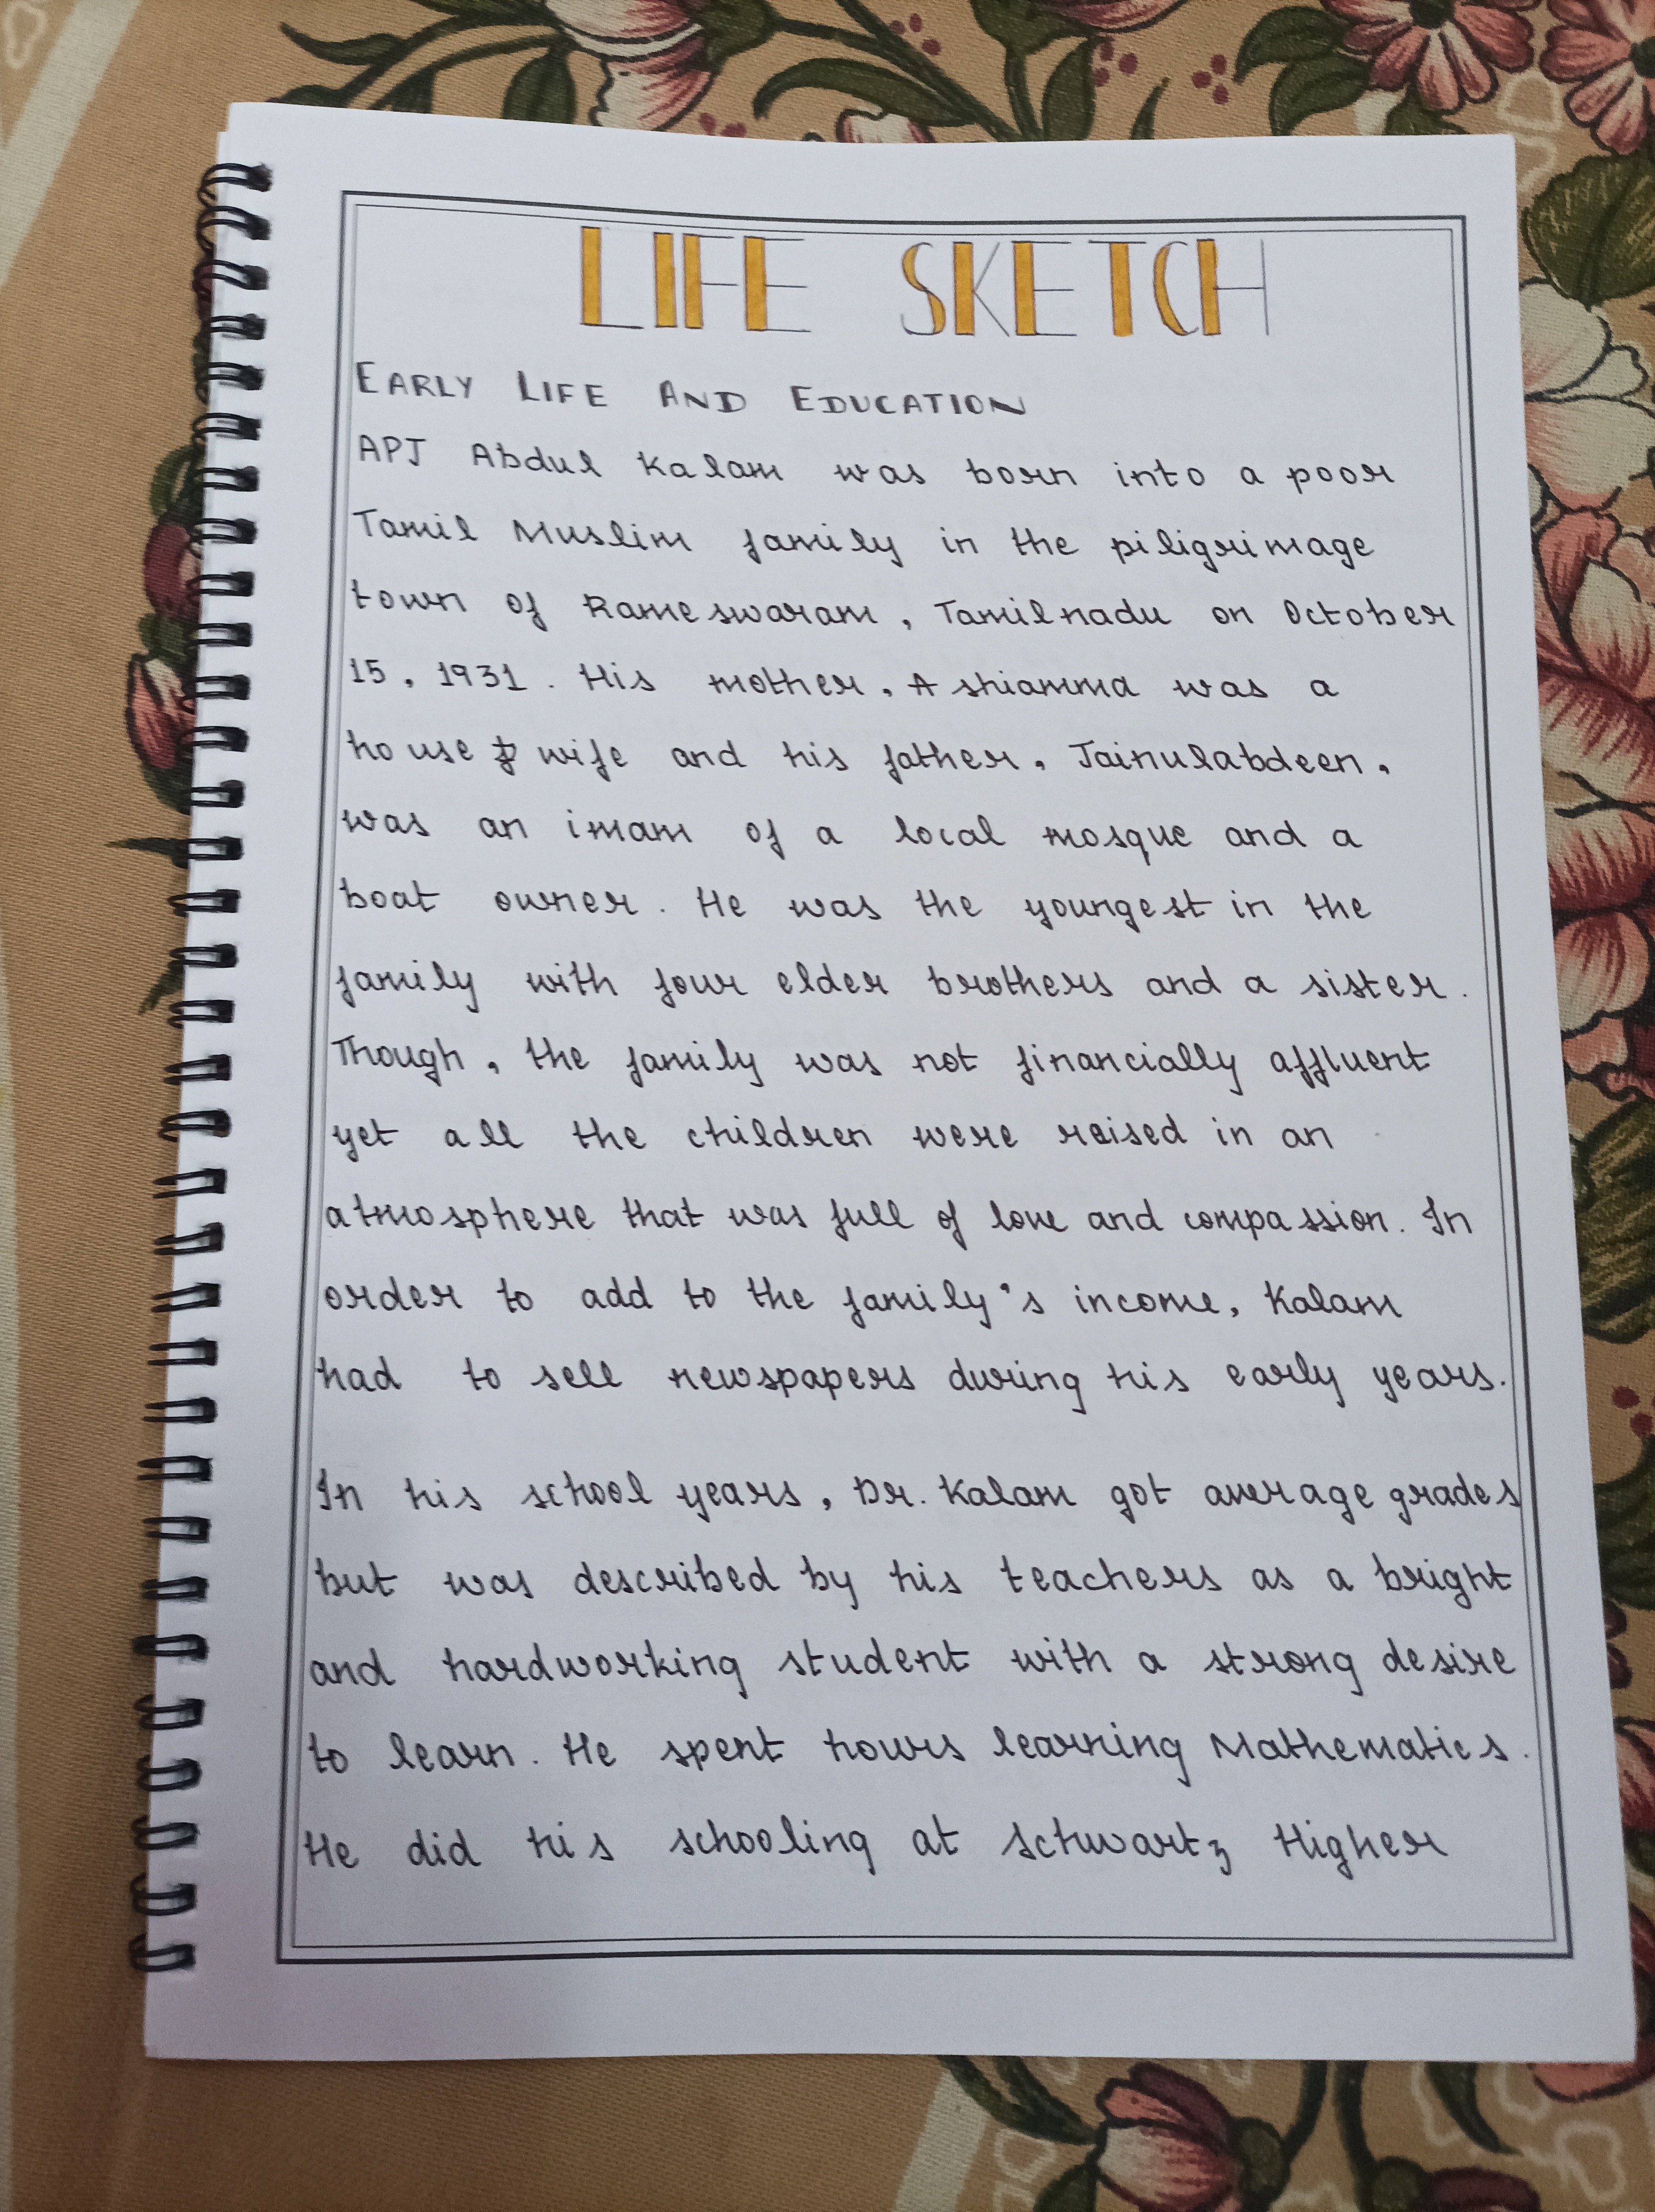 LIFE SKETCH
EARLY LIFE AND EDUCATION
APJ Abdul Kalam was born into a poor
Tamil Muslim family in the piligrimage
town of Rameswaram, Tamilnadu on October
15, 1931. His mother, Ashiamma was a
house wife and his father, Jainulabdeen,
was an imam of a local mosque and a
boat owner. He was the youngest in the
family with four elder brothers and a sister.
Though, the family was not financially affluent
yet all the children were raised in an
atmosphere that was full of love and compassion. In
order to add to the family's income, Kalam
had to sell newspapers during his early years.
In his school years, Dr. Kalam got average grades
but was described by his teachers as a bright
and hardworking student with a strong desire
to learn. He spent hours learning Mathematics.
He did his schooling at Schwartz Higher